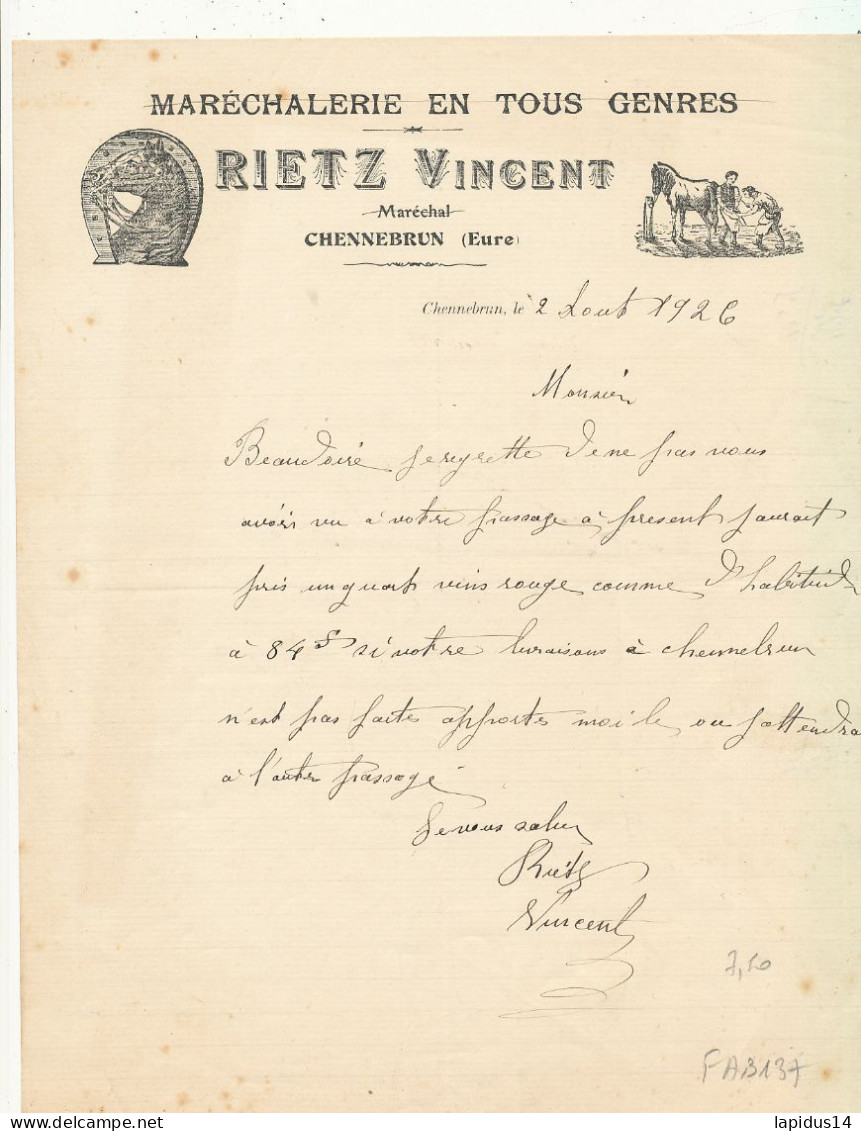 MARÉCHALERIE EN TOUS GENRES
RIETZ VINCENT
Maréchal
CHENNEBRUN (Eure)
Chennebrun, le 2 Aout 1926
Monsieur
Beaudoiré je regrette de ne pas vous
avoir vu a votre passage a present jaurait
pris un quart vins rouge comme d'habitude
à 84 f si votre livraisons à chennebrun
n'est pas faites apportes moi le ou j'attendra
a l'autre passage
Je vous salue
Rietz
Vincent
7,50
FAB137
delcampe.net
lapidus14